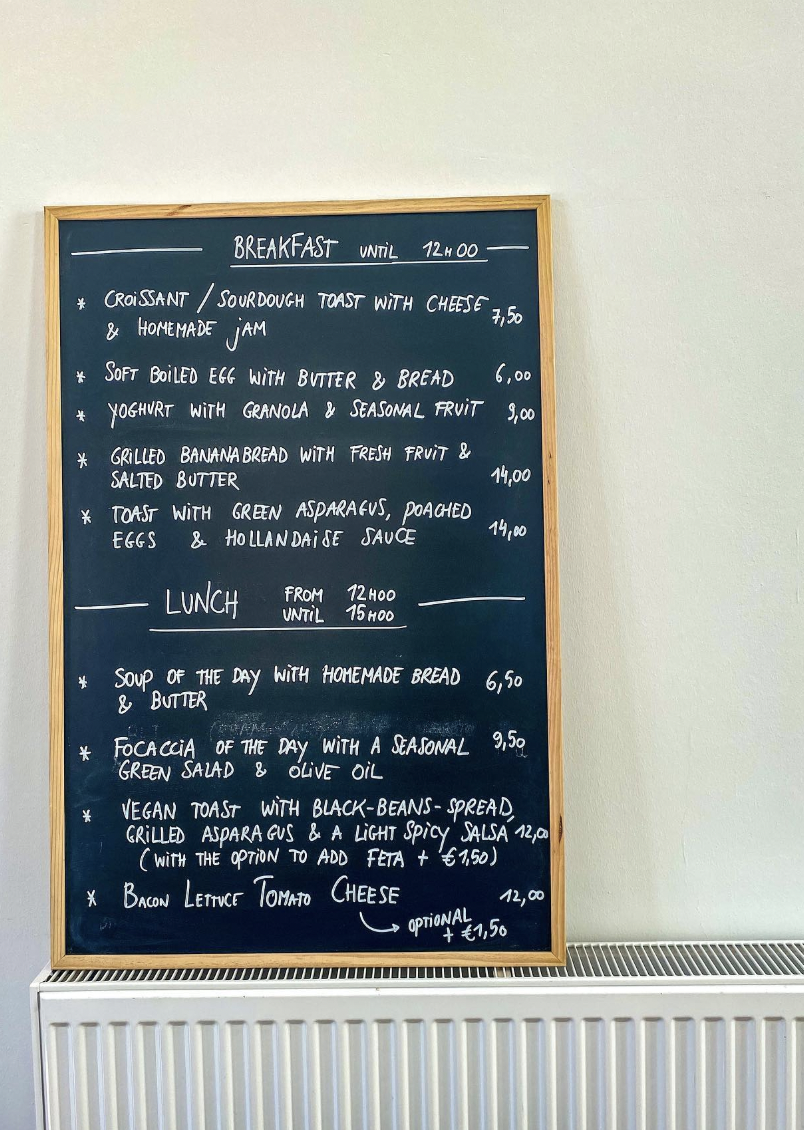 BREAKFAST UNTIL 12H00
* CROISSANT / SOURDOUGH TOAST WITH CHEESE
& HOMEMADE JAM 7,50
* SOFT BOILED EGG WITH BUTTER & BREAD 6,00
* YOGHURT WITH GRANOLA & SEASONAL FRUIT 9,00
* GRILLED BANANABREAD WITH FRESH FRUIT &
SALTED BUTTER 14,00
* TOAST WITH GREEN ASPARAGUS, POACHED
EGGS & HOLLANDAISE SAUCE 14,00
LUNCH FROM 12H00
UNTIL 15H00
* SOUP OF THE DAY WITH HOMEMADE BREAD 6,50
& BUTTER
* FOCACCIA OF THE DAY WITH A SEASONAL 9,50
GREEN SALAD & OLIVE OIL
* VEGAN TOAST WITH BLACK-BEANS-SPREAD,
GRILLED ASPARAGUS & A LIGHT SPICY SALSA 12,00
(WITH THE OPTION TO ADD FETA + €1,50)
* BACON LETTUCE TOMATO CHEESE 12,00
OPTIONAL
+ €1,50